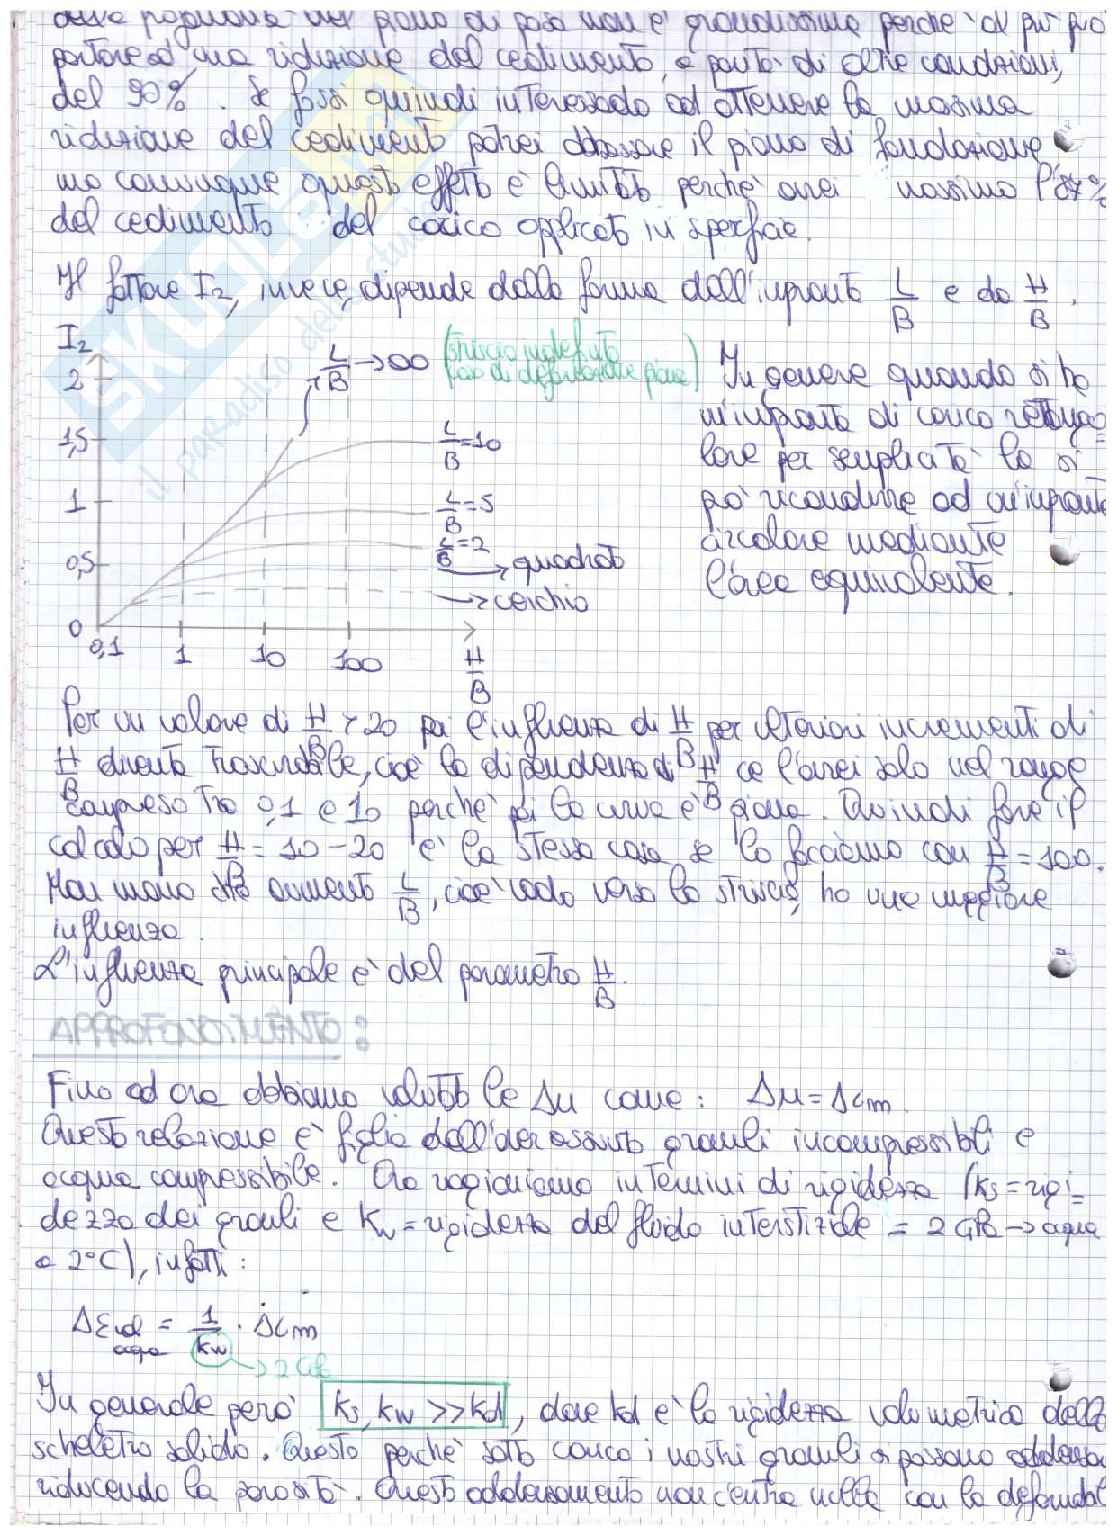 della profondità del piano di posa non è grandissima perché al più può
portare ad una riduzione del cedimento, a parità di altre condizioni,
del 90%. Se fossi quindi interessato ad ottenere la massima
riduzione del cedimento potrei abbassare il piano di fondazione
ma comunque questo effetto è limitato perché avrei massimo l'87%
del cedimento del carico applicato in superficie.
Il fattore I2, invece, dipende dalla forma dell'impronta L/B e da H/B.
I2
2
1,5
1
0,5
0
0,1 1 10 100 H/B
L/B → ∞ (striscia indefinita
caso di deformazione piana)
L/B = 10
L/B = 5
L/B = 2
→ quadrato
→ cerchio
In genere quando si ha
un'impronta di carico rettango=
lare per semplicità la si
può ricondurre ad un'impronta
circolare mediante
l'area equivalente.
Per un valore di H/B > 20 poi l'influenza di H/B per ulteriori incrementi di
H/B diventa trascurabile, cioè la dipendenza di H/B ce l'avrei solo nel range
compreso tra 0,1 e 10 perché poi la curva è piana. Quindi fare il
calcolo per H/B = 10-20 è la stessa cosa se lo facciamo con H/B = 100.
Man mano che aumento L/B, cioè vado verso la striscia, ho una maggiore
influenza.
L'influenza principale è del parametro H/B.
APPROFONDIMENTO:
Fino ad ora abbiamo valutato le Δu come: Δu = Δσm.
Questa relazione è figlia dell'aver assunto granuli incompressibili e
acqua compressibile. Ora ragioniamo in termini di rigidezza (Ks = rigi=
dezza dei granuli e Kw = rigidezza del fluido interstiziale = 2 GPa → acqua
a 2°C), infatti:
Δεvol acqua = 1/Kw · Δσm
→ 2 GPa
In generale però Ks, Kw >> Kd, dove Kd è la rigidezza volumetrica dello
scheletro solido. Questo perché sotto carico i nostri granuli si possono addensare
riducendo la porosità. Questo addensamento non c'entra nulla con la deformabil